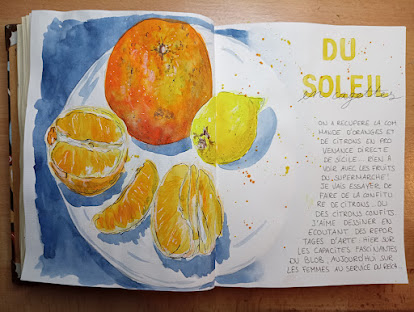 DU
SOLEIL
en cagettes
ON A RÉCUPÉRÉ LA COM
MANDE D'ORANGES ET
DE CITRONS EN PRO
VENANCE DIRECTE
DE SICILE... RIEN À
VOIR AVEC LES FRUITS
DU "SUPERMARCHÉ".
JE VAIS ESSAYER DE
FAIRE DE LA CONFITU
RE DE CITRONS... OU
DES CITRONS CONFITS.
J'AIME DESSINER EN
ÉCOUTANT DES REPOR
TAGES D'ARTE: HIER SUR
LES CAPACITÉS FASCINANTES
DU BLOB, AUJOURD'HUI SUR
LES FEMMES AU SERVICE DU REICH.